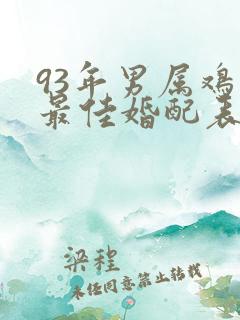 93年男属鸡
最佳婚配表
梁程
未经同意禁止转载